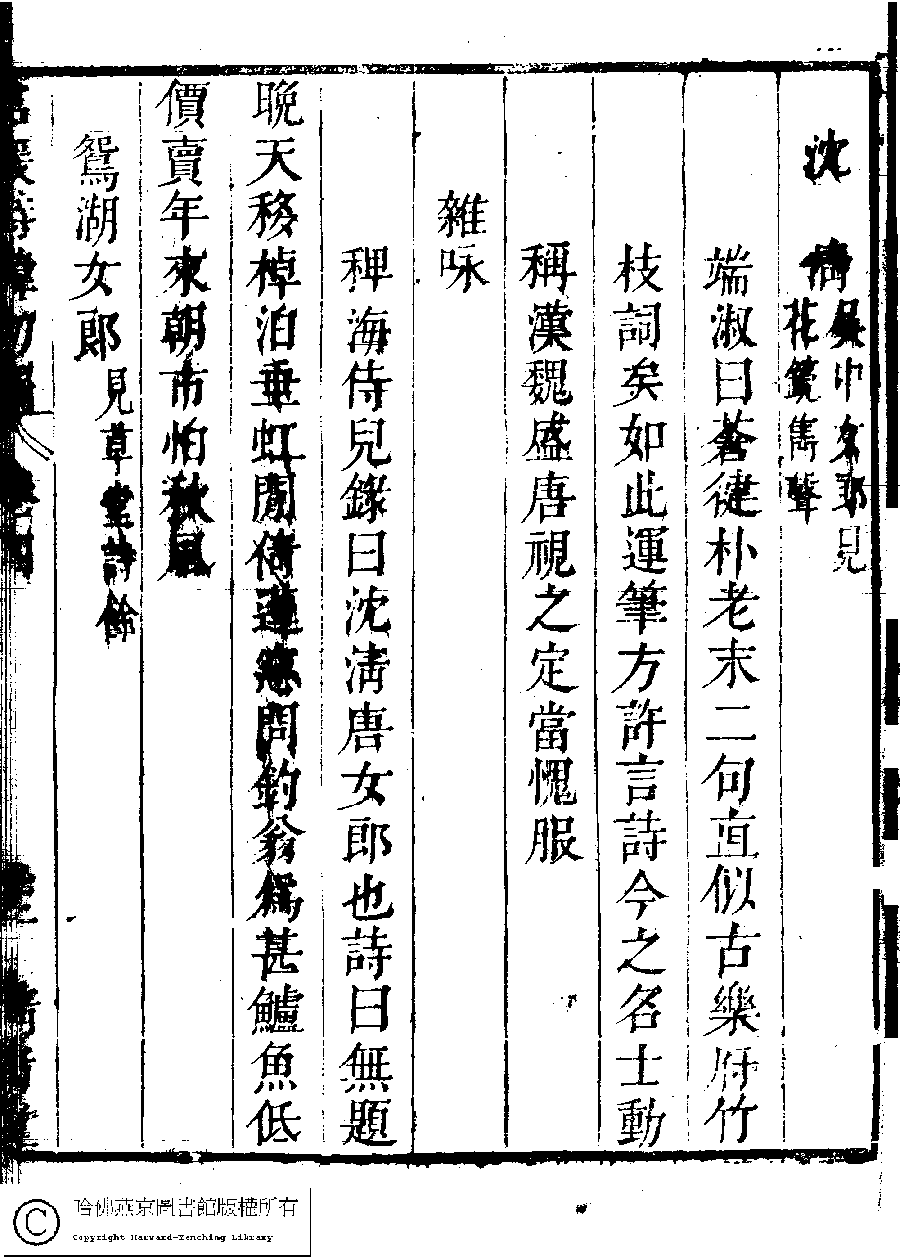 沈清吳中女郎見
花鏡雋聲
端淑曰蒼健朴老末二句直似古樂府竹
枝詞矣如此運筆方許言詩今之名士動
稱漢魏盛唐視之定當愧服
雜咏
稗海侍兒錄曰沈淸唐女郎也詩曰無題
晩天移棹泊垂虹閒倚蓬窓問釣翁爲甚鱸魚低
價賣年來朝市怕秋風
鴛湖女郎見草堂詩餘
名媛詩緯初編
哈佛燕京圖書館版權所有
Copyright Harvard-Yenching Library